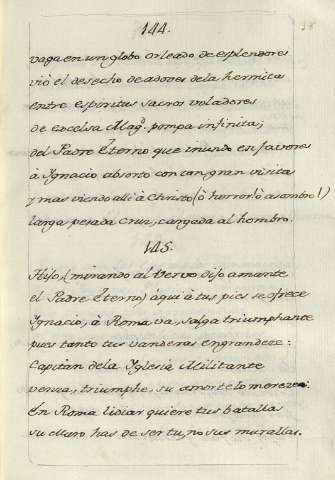 144.
vaga en un globo orleado de esplendores
vió el desecho de adores de la hermita
entre espiritus sacros voladores
de excelsa Magᵈ. pompa infinita;
del Padre Eterno que inundó en favores
à Ignacio absorto con tan gran visita
y mas viendo alli à Christo (ò horror! ò asombro!)
larga pesada Cruz, cargada al hombro.
145.
Hijo, (mirando al Vervo dijo amante
el Padre Eterno) aqui à tus pies se ofrece
Ignacio, à Roma va, salga triumphante
pues tanto tus vanderas engrandece:
Capitan de la Iglesia Militante
venza, triumphe, su amor te lo merece:
En Roma lidiar quiere tus batallas
su Muro has de ser tu, no sus murallas.